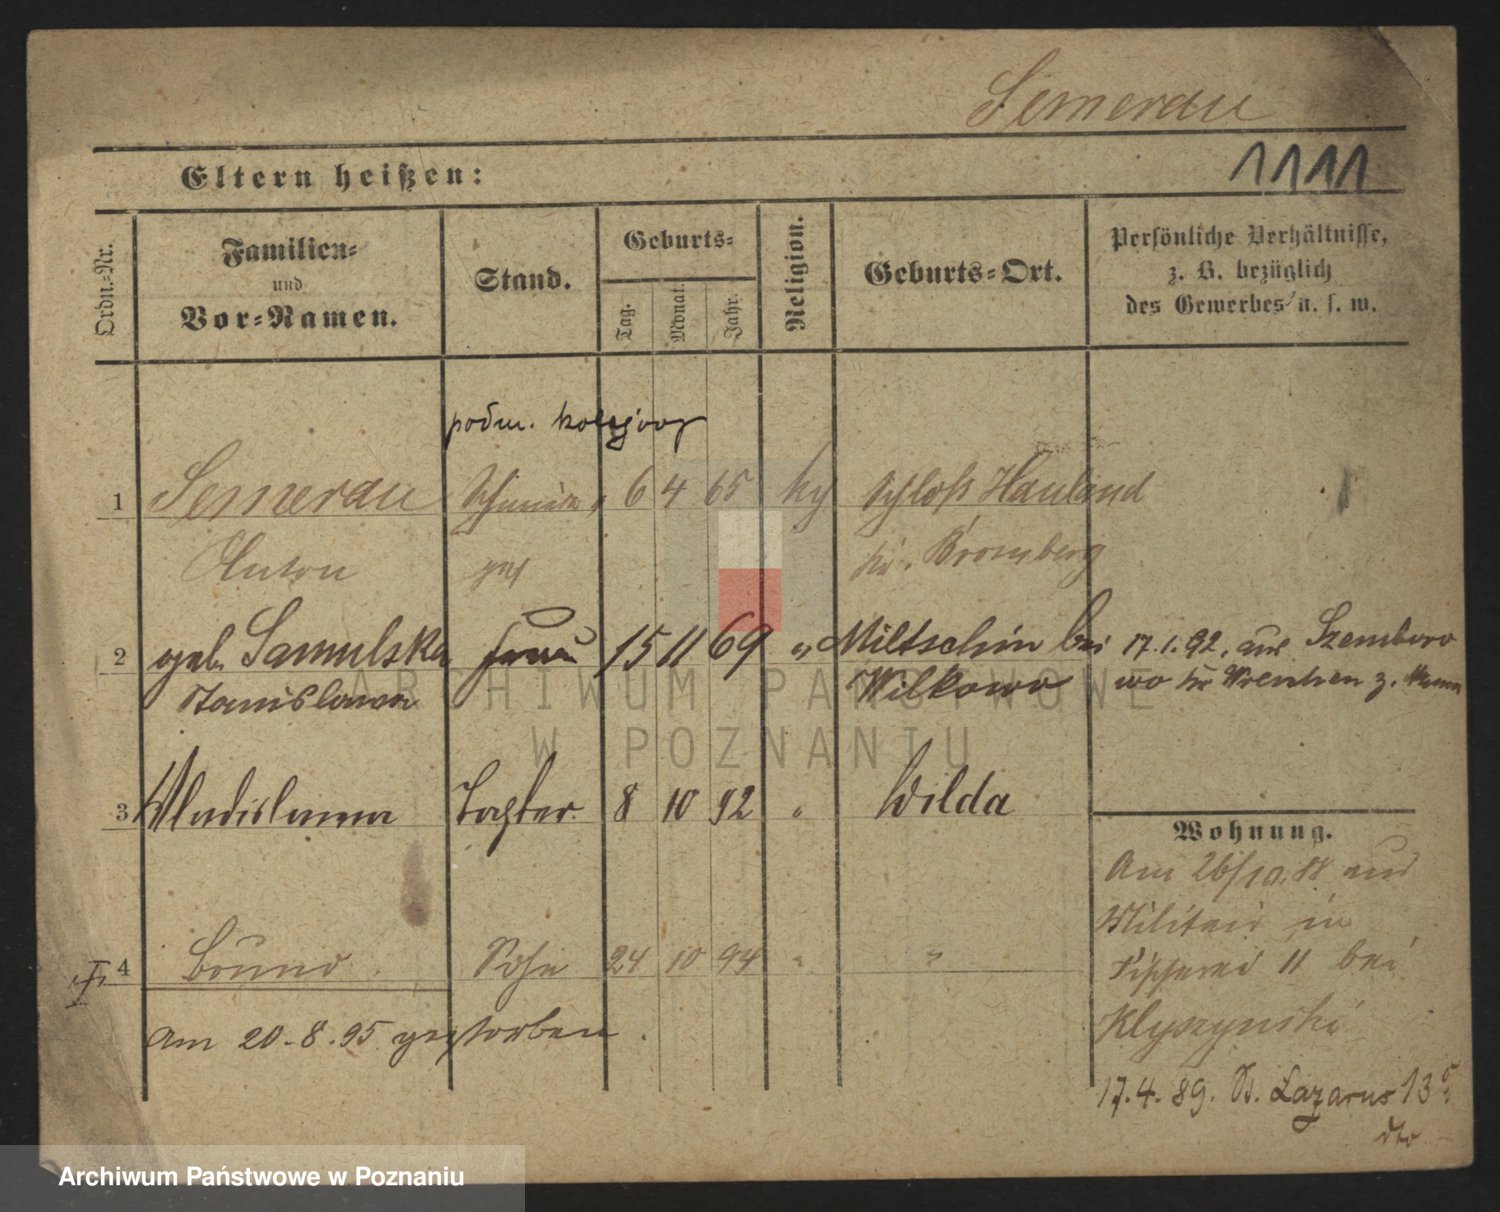 Semerau
Eltern heißen:
1111
Ordn.-Nr.
Familien-
und
Vor-Namen.
Stand.
Geburts-
Tag.
Monat.
Jahr.
Religion.
Geburts-Ort.
Persönliche Verhältnisse,
z. B. bezüglich
des Gewerbes u. s. w.
1 Semerau 6 4 65 Schloß Hauland
Anton Kr. Bromberg
2 geb. Samulska Frau 15 11 69 " Miltschin bei 17.1.92. aus Szemboro
Stanislawa Wilkowo wo Kr Wreschen z. Mann
3 Wladislawa Tochter 8 10 92 " Wilda
Wohnung.
Am 26/10.88 aus
Militair in
Fischerei 11 bei
4 Bruno Sohn 24 10 94 " "
Klyszynski
am 20.8.95 gestorben.
17.4.89. St. Lazarus 13
dto
ARCHIWUM PAŃSTWOWE
W POZNANIU
Archiwum Państwowe w Poznaniu